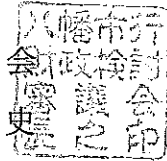 八幡市行
財政検討
審議会
長之印
会
史